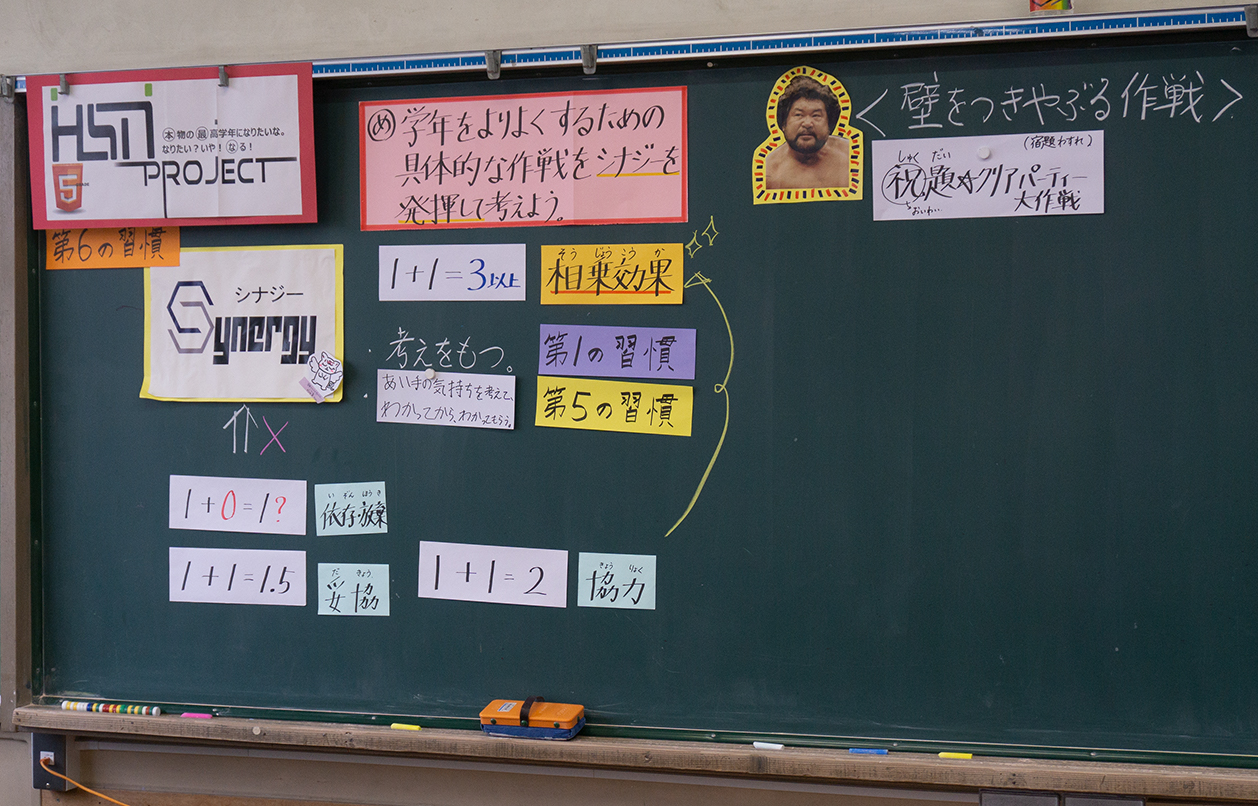 HSN
PROJECT
本物の最高学年になりたいな。
なりたい?いや!なる!
5
第6の習慣
シナジー
Synergy
め 学年をよりよくするための
具体的な作戦をシナジーを
発揮して考えよう。
1+1=3以上
そうじょうこうか
相乗効果
考えをもつ。
あい手の気持ちを考えて、
わかってから、わかってもらう。
第1の習慣
第5の習慣
1+0=1?
いぞんほうき
依存・放棄
1+1=1.5
だきょう
妥協
1+1=2
きょうりょく
協力
<壁をつきやぶる作戦>
(宿題わすれ)
しゅくだい
祝題☆クリアパーティー
おいわい
大作戦